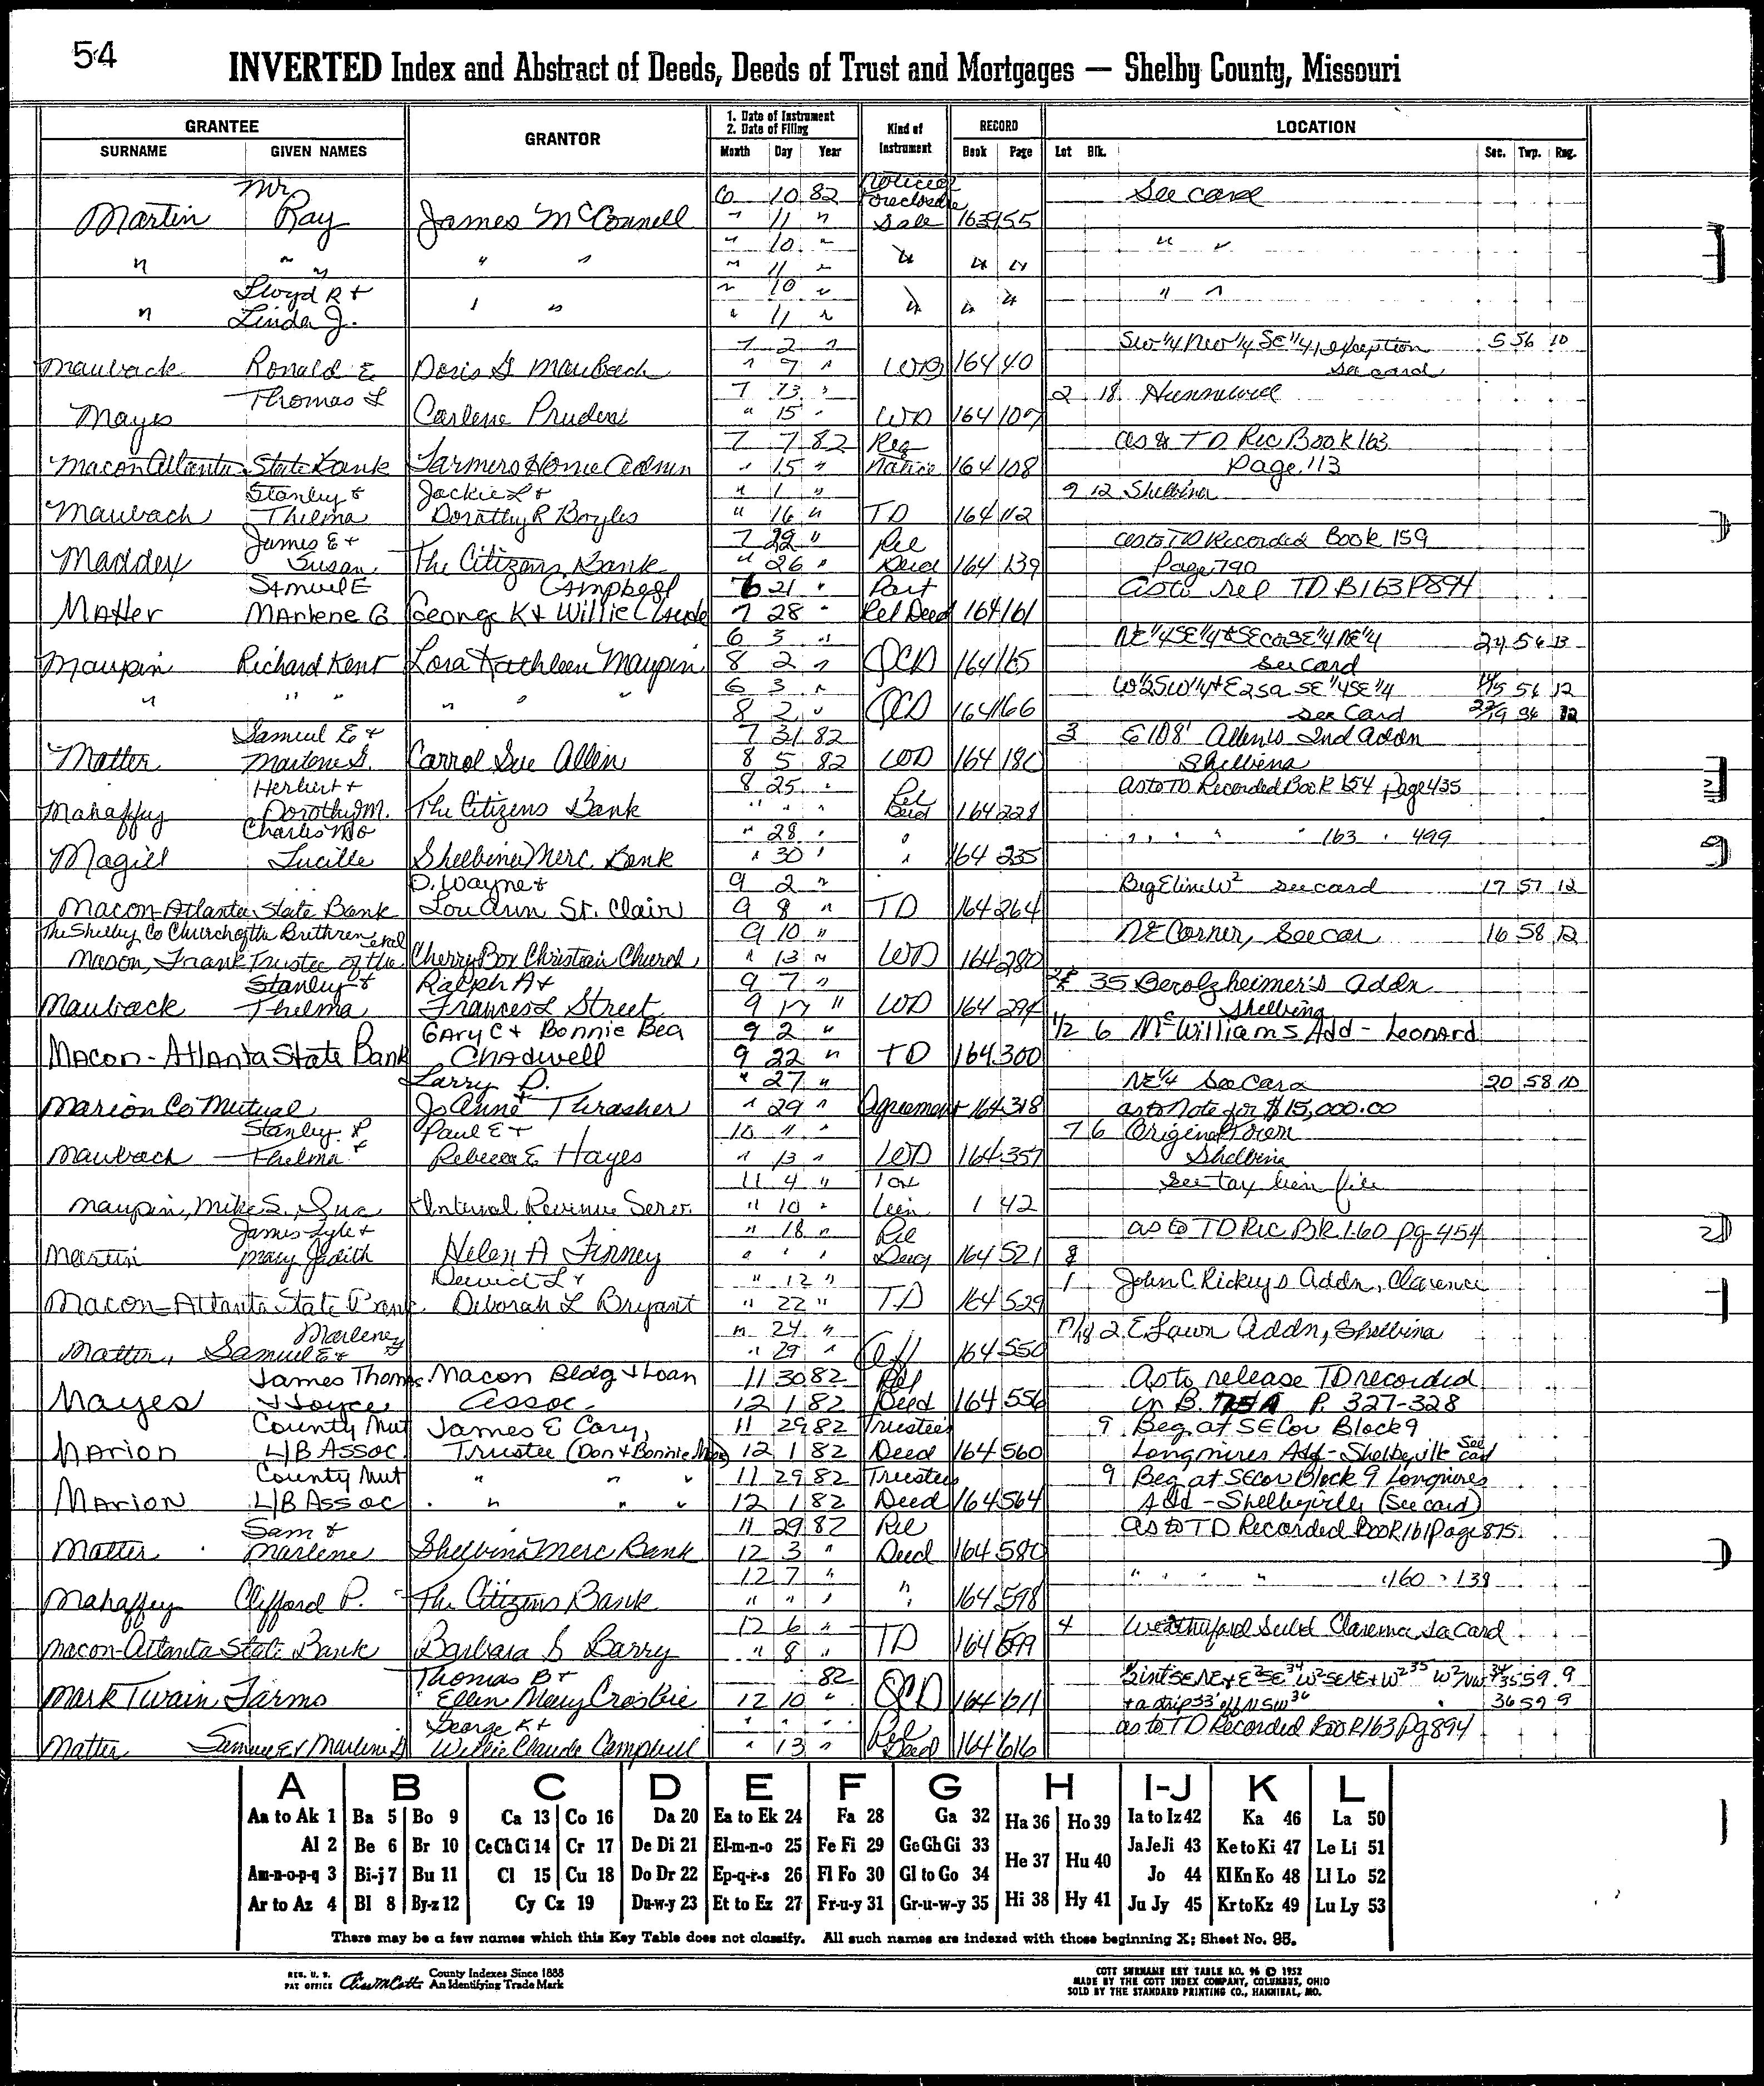 54
INVERTED Index and Abstract of Deeds, Deeds of Trust and Mortgages — Shelby County, Missouri
GRANTEE
SURNAME GIVEN NAMES
GRANTOR
1. Date of Instrument
2. Date of Filing
Month Day Year
Kind of
Instrument
RECORD
Book Page
LOCATION
Lot Blk. Sec. Twp. Rng.
Mr 6 10 82 Notice of See card
Foreclosure
Martin Ray James McConnell " 11 " Sale 163 955
" 10 " " "
" " " " " " 11 " " " "
Lloyd R + " 10 " " "
" Linda J. " " " 11 " " " "
7 2 " SW 1/4 NW 1/4 SE 1/4, exception 5 56 10
Mauback Ronald E Doris G Maubach " 9 " WD 164 40 see card
Thomas L 7 13 " 2 18 Hunnewell
Mayes Carlene Pruden " 15 " WD 164 107
7 7 82 Reg as to TD Rec Book 163
Macon Atlanta State Bank Farmers Home Admin " 15 " Notice 164 108 Page 113
Stanley + Jackie L + " 1 " 9 12 Shelbina
Maubach Thelma Dorothy R Boyles " 16 " TD 164 112
James E + 7 22 " Rel as to TD Recorded Book 159
Maddex Susan The Citizens Bank " 26 " Deed 164 139 Page 790
Samuel E Campbell 6 21 " Part As to rel TD B163 P894
Matter Marlene G George K + Willie Claude 7 28 " Rel Deed 164 161
6 3 " 24 56 13
Maupin Richard Kent Lora Kathleen Maupin 8 2 " QCD 164 165 see card
6 3 " W 1/2 SW 1/4 + E 25a SE 1/4 SE 1/4 56 12
" " " " " " 8 2 " QCD 164 166 see Card
Samuel E + 7 31 82 3 E 108' Allen's Ind Addn
Matter Marlene G. Carrol Sue Allen 8 5 82 WD 164 180 Shelbina
Herbert + 8 25 " Rel as to TD Recorded Book 154 page 435
Mahaffey Dorothy M. The Citizens Bank " " " Deed 164 228
Charles M + " 28 " " " " " " " 163 " 499
Magill Lucille Shelbina Merc Bank " 30 " " 164 235
D. Wayne + 9 2 " Beg E line W2 see card 17 57 12
Macon-Atlanta State Bank Lou Ann St. Clair 9 8 " TD 164 264
The Shelby Co Church of the Brethren et al 9 10 " NE Corner, See car 16 58 12
Mason, Frank Trustee of the Cherry Box Christian Church " 13 " WD 164 280
Stanley + Ralph A + 9 7 " 35 Berolzheimer's Addn
Mauback Thelma Frances L Street 9 17 " WD 164 294 Shelbina
Gary C + Bonnie Bea 9 2 " 1/2 6 McWilliams Add - Leonard
Macon-Atlanta State Bank Chadwell 9 22 " TD 164 300
Larry D. " 27 " NE 1/4 See Card 20 58 10
Marion Co Mutual + JoAnne Thrasher " 29 " Agreement 164 318 as to Note for $15,000.00
Stanley P Paul E + 10 11 " 7 6 Original Town
Maubach Thelma + Rebecca E Hayes " 13 " WD 164 357 Shelbina
11 4 " Tax See tax lien file
Maupin, Mike S., Inc Internal Revenue Serv. " 10 " Lien 1 42
James Lyle + " 18 " Rel as to TD Rec BK 160 pg 454
Martin Mary Judith Helen A Finney " " " Deed 164 521
David L + " 12 " 1 John C Rickey's Addn, Clarence
Macon-Atlanta State Bank Deborah L Bryant " 22 " TD 164 529
Marlene G " 24 " 17/18 2 E Lawn Addn, Shelbina
Matter, Samuel E + " 29 " Aff 164 550
James Thomas Macon Bldg + Loan 11 30 82 Rel As to release TD recorded
Mayes + Joyce Assoc. 12 1 82 Deed 164 556 in B. P. 327-328
County Mut James E Cary, 11 29 82 Trustee's 9 Beg. at SE Cor Block 9
Marion L/B Assoc. Trustee (Don + Bonnie 12 1 82 Deed 164 560 Longmires Add - Shelbyville See card
County Mut " " " 11 29 82 Trustees 9 Beg. at SE cor Block 9 Longmires
Marion L/B Assoc " " " 12 1 82 Deed 164 564 Add - Shelbyville (See card)
Sam + 11 29 82 Rel as to TD Recorded Book 161 Page 875
Matter Marlene Shelbina Merc Bank 12 3 " Deed 164 580
12 7 " " " " " " 160 " 138
Mahaffey Clifford P. The Citizens Bank " " " " 164 598
12 6 " 4 Weatherford Subd Clarence See Card
Macon-Atlanta State Bank Barbara S Barry " 8 " TD 164 599
Thomas B + 82 59 9
Mark Twain Farms Ellen Mary Crosbie 12 10 " QCD 164 611 + a strip 33' off N SW 36 36 59 9
George K + " " " Rel as to TD Recorded Book 163 Pg 894
Matter Samuel E + Marlene G Willie Claude Campbell " 13 " Deed 164 616
A B C D E F G H I-J K L
Aa to Ak 1 Ba 5 Bo 9 Ca 13 Co 16 Da 20 Ea to Ek 24 Fa 28 Ga 32 Ha 36 Ho 39 Ia to Iz 42 Ka 46 La 50
Al 2 Be 6 Br 10 Ce Ch Ci 14 Cr 17 De Di 21 El-m-n-o 25 Fe Fi 29 Ge Gh Gi 33 He 37 Hu 40 Ja Je Ji 43 Ke to Ki 47 Le Li 51
Am-n-o-p-q 3 Bi-j 7 Bu 11 Cl 15 Cu 18 Do Dr 22 Ep-q-r-s 26 Fl Fo 30 Gl to Go 34 Hi 38 Hy 41 Jo 44 Kl Kn Ko 48 Ll Lo 52
Ar to Az 4 Bl 8 By-z 12 Cy Cz 19 Du-w-y 23 Et to Ez 27 Fr-u-y 31 Gr-u-w-y 35 Ju Jy 45 Kr to Kz 49 Lu Ly 53
There may be a few names which this Key Table does not classify. All such names are indexed with those beginning X; Sheet No. 95.
REG. U. S.
PAT OFFICE
County Indexes Since 1888
An Identifying Trade Mark
COTT SURNAME KEY TABLE NO. 96 © 1952
MADE BY THE COTT INDEX COMPANY, COLUMBUS, OHIO
SOLD BY THE STANDARD PRINTING CO., HANNIBAL, MO.